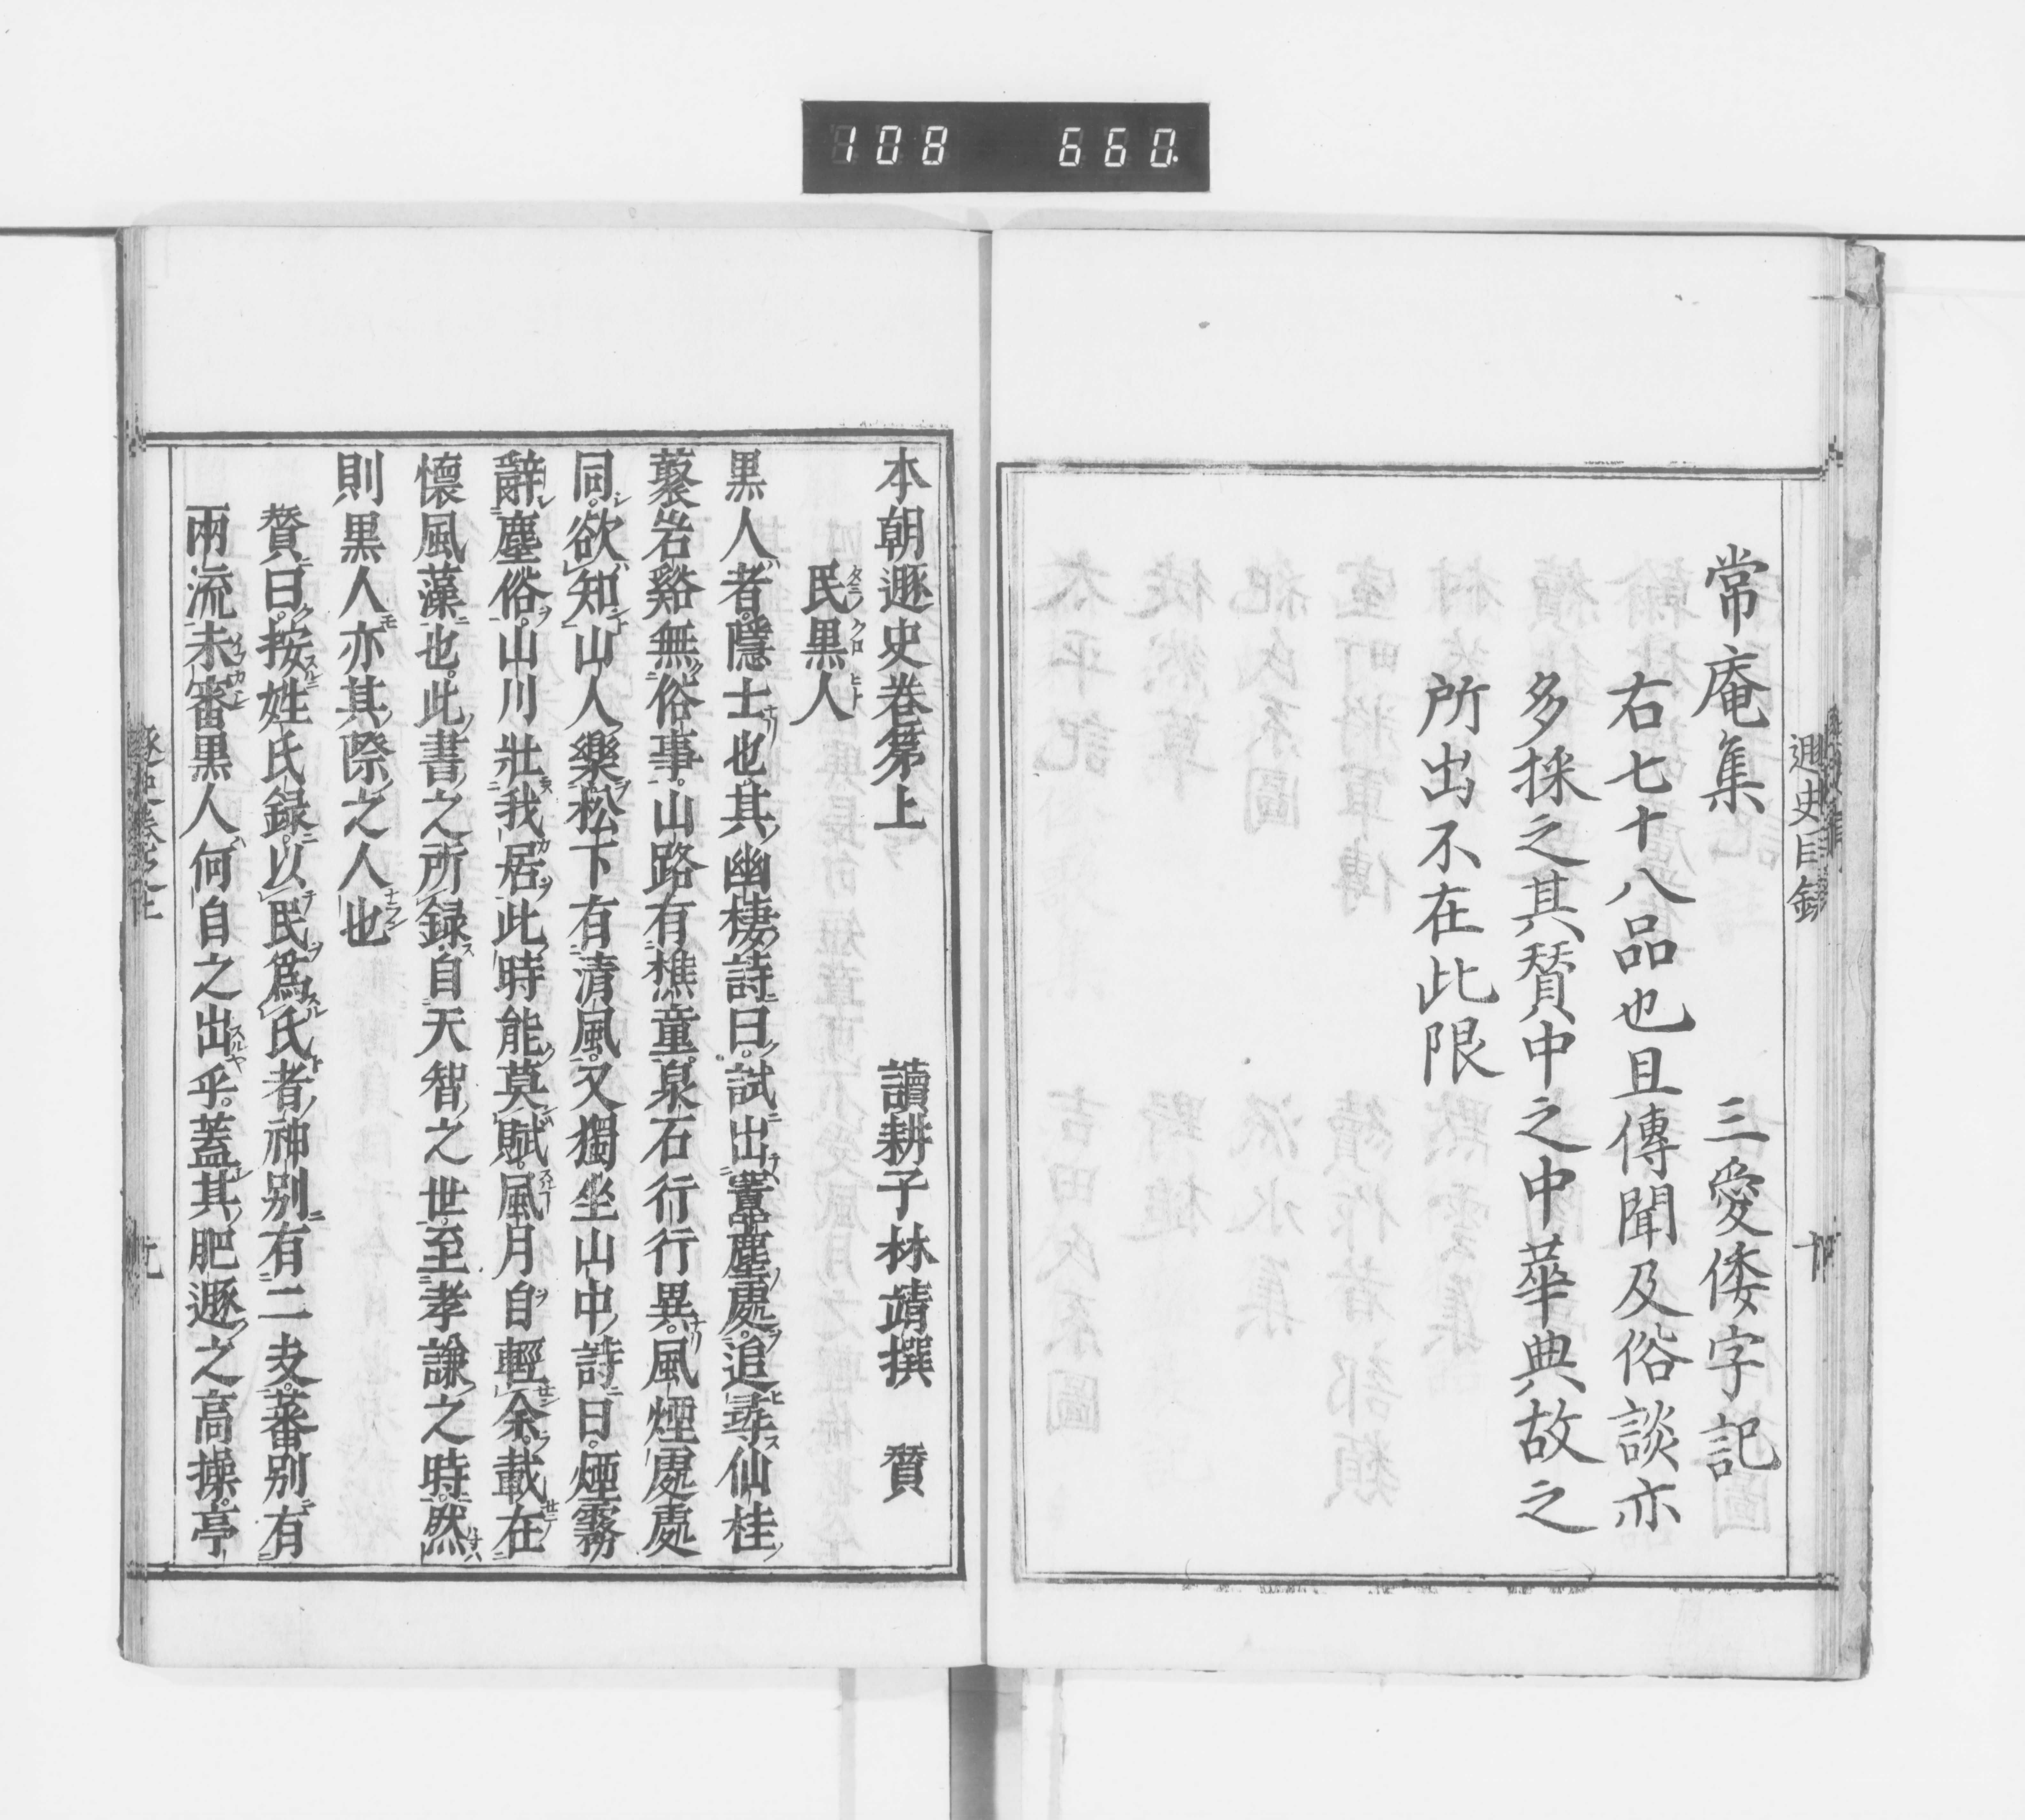 108 660
常庵集 三愛倭字記
右七十八品也且傳聞及俗談亦
多採之其賛中之中華典故之
所出不在此限
遯史目録
本朝遯史卷第上 讀耕子林靖撰 賛
民黒人
黒人者隱士也其幽棲詩曰試出囂塵處追尋仙桂
藂岩谿無俗事山路有樵童泉石行行異風煙處處
同欲知山人樂松下有清風又獨坐山中詩曰煙霧
辭塵俗山川壯我居此時能莫賦風月自輕余載在
懷風藻也此書之所録自天智之世至孝謙之時然
則黒人亦其際之人也
賛曰按姓氏録以民爲氏者神别有二支蕃别有
兩流未審黒人何自之出乎蓋其肥遯之高操亭